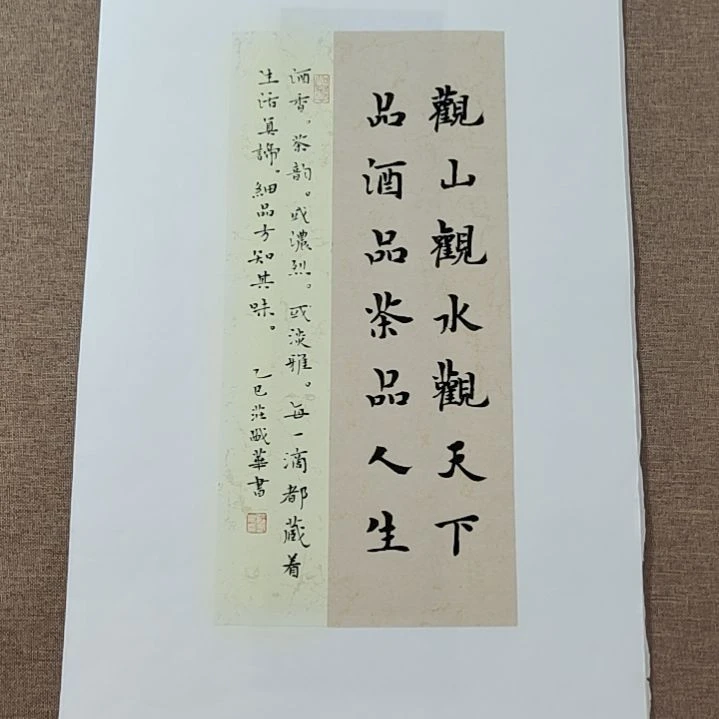 觀山觀水觀天下
品酒品茶品人生
酒香。茶韵。或濃烈。或淡雅。每一滴都藏着
生活真諦。細品方知其味。
乙巳莊盛華書